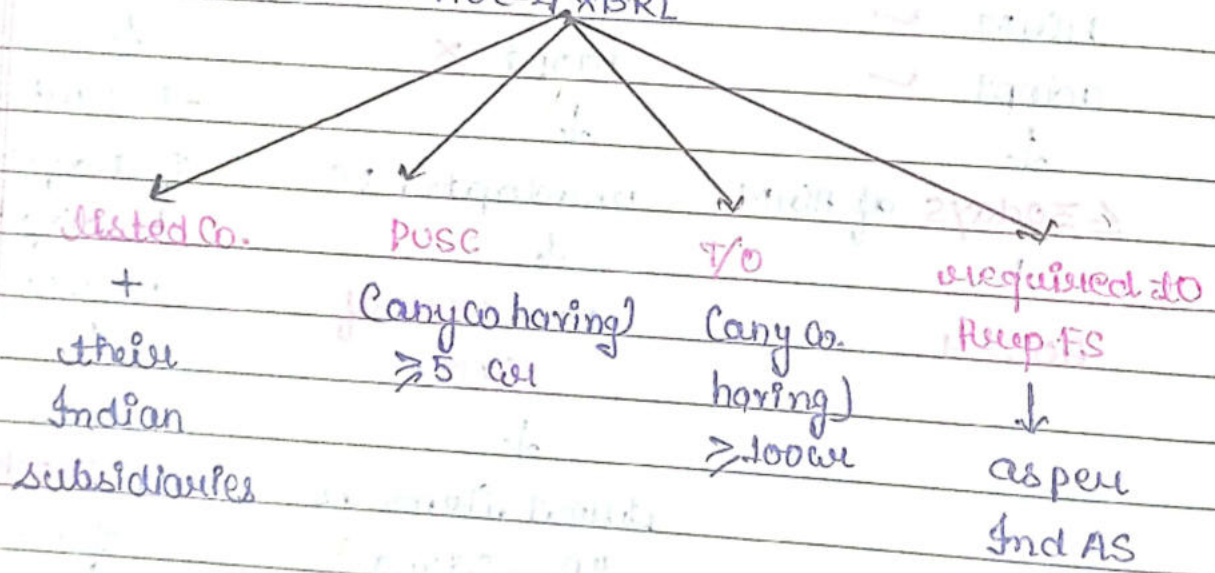 AOC-4 XBRL
Listed Co.
+
their
Indian
subsidiaries
PUSC
(any co having)
≥5 cr
T/O
(any co.
having)
≥100cr
required to
Prep. F.S
↓
as per
Ind AS